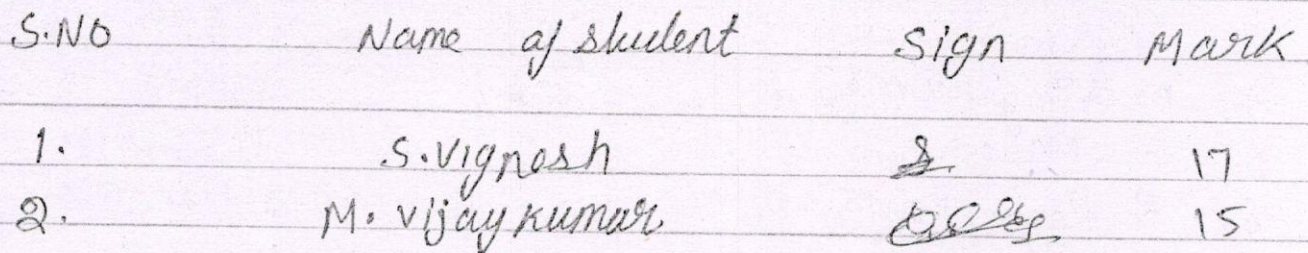 S.NO Name of student Sign Mark
1. S.Vignesh 17
2. M. Vijay Kumar 15